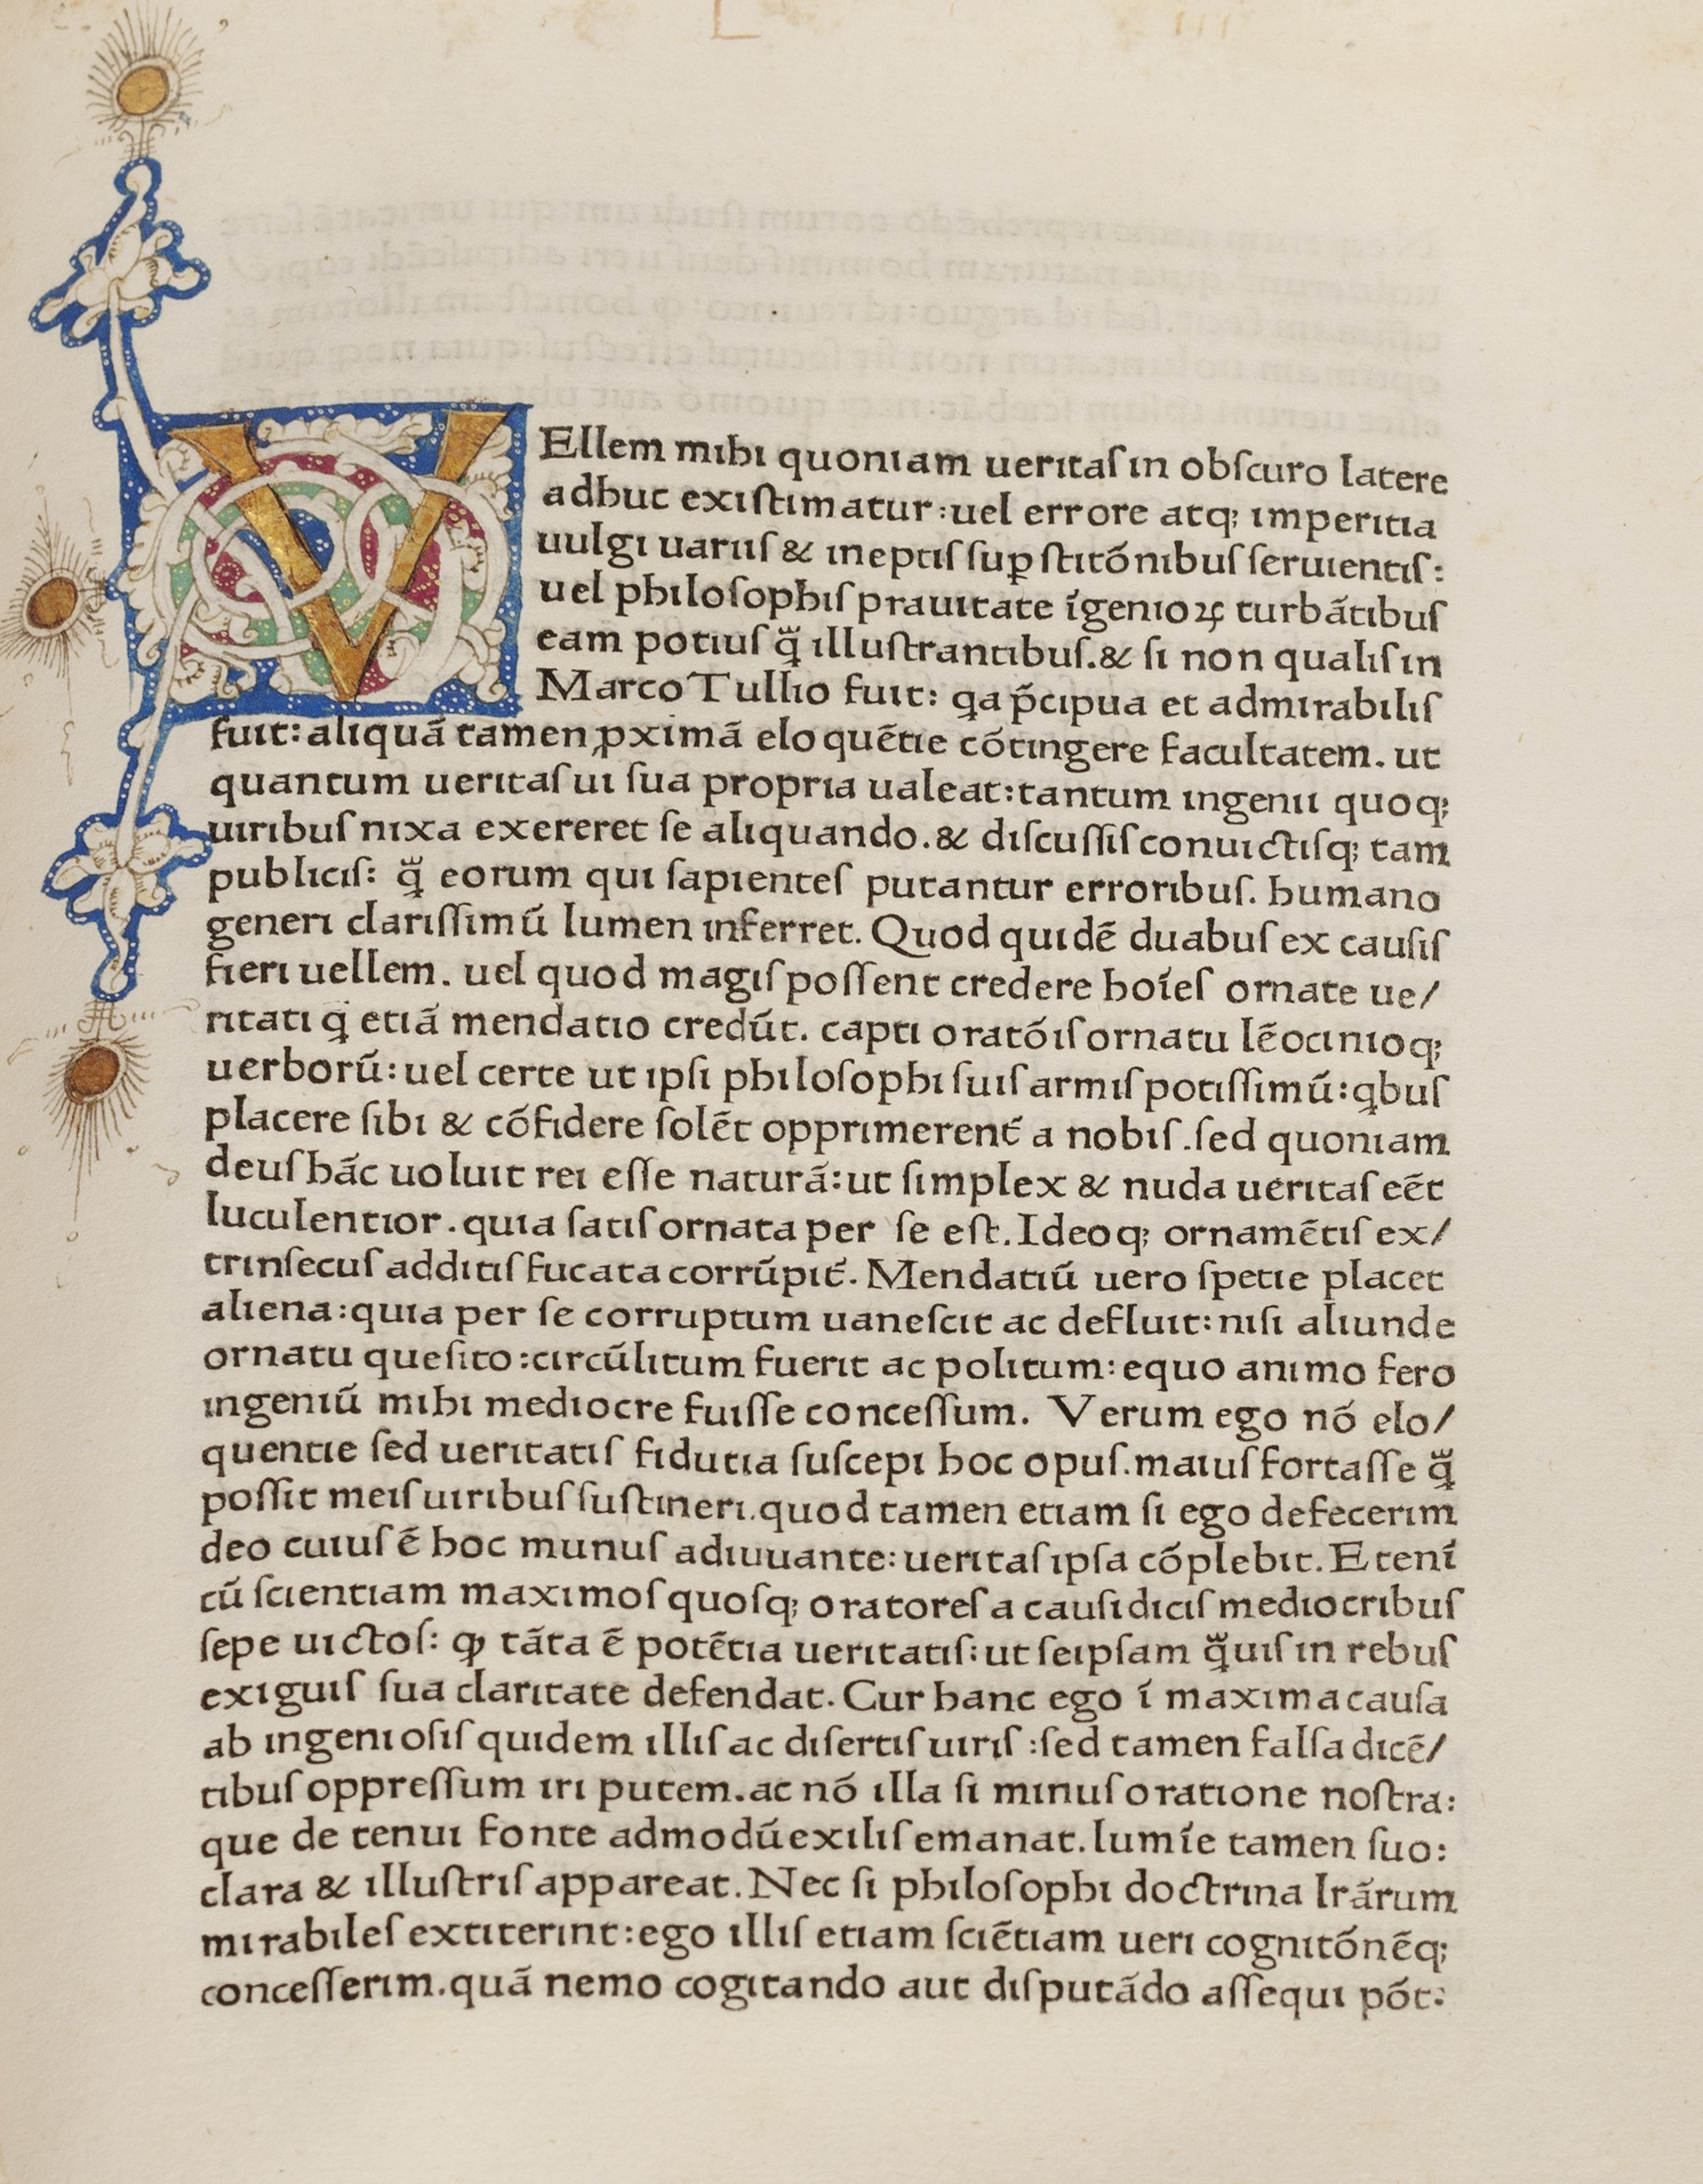 VEllem mihi quoniam ueritaſ in obſcuro latere
adhuc exiſtimatur: uel errore atq; imperitia
uulgi uariiſ & ineptiſ ſuꝑſtitōnibuſ ſeruientiſ:
uel philoſophiſ prauitate īgenioꝝ turbātibuſ
eam potiuſ q̃ illuſtrantibuſ. & ſi non qualiſ in
Marco Tullio fuit: qa p̄cipua et admirabiliſ
fuit: aliquā tamen ꝓximā eloquētie cōtingere facultatem. ut
quantum ueritaſ ui ſua propria ualeat: tantum ingenii quoq;
uiribuſ nixa exereret ſe aliquando. & diſcuſſiſ conuictiſq; tam
publiciſ: q̃ eorum qui ſapienteſ putantur erroribuſ. humano
generi clariſſimū lumen inferret. Quod quidē duabuſ ex cauſiſ
fieri uellem. uel quod magiſ poſſent credere hoīeſ ornate ue/
ritati q etiā mendatio credūt. capti oratōiſ ornatu lēocinioq;
uerborū: uel certe ut ipſi philoſophi ſuiſ armiſ potiſſimū: qbuſ
placere ſibi & cōfidere ſolēt opprimerent̄ a nobiſ. ſed quoniam
deuſ hāc uoluit rei eſſe naturā: ut ſimplex & nuda ueritaſ eēt
luculentior. quia ſatiſ ornata per ſe eſt. Ideoq; ornamētiſ ex/
trinſecuſ additiſ fucata corrūpit̄. Mendatiū uero ſpetie placet
aliena: quia per ſe corruptum uaneſcit ac defluit: niſi aliunde
ornatu queſito: circūlitum fuerit ac politum: equo animo fero
ingeniū mihi mediocre fuiſſe conceſſum. Verum ego nō elo/
quentie ſed ueritatiſ fidutia ſuſcepi hoc opuſ. maiuſ fortaſſe q̃
poſſit meiſ uiribuſ ſuſtineri. quod tamen etiam ſi ego defecerim
deo cuiuſ ē hoc munuſ adiuuante: ueritaſ ipſa cōplebit. Etenī
cū ſcientiam maximoſ quoſq; oratoreſ a cauſidiciſ mediocribuſ
ſepe uictoſ: ꝙ tāta ē potētia ueritatiſ: ut ſeipſam q̃uiſ in rebuſ
exiguiſ ſua claritate defendat. Cur hanc ego ī maxima cauſa
ab ingenioſiſ quidem illiſ ac diſertiſ uiriſ: ſed tamen falſa dicē/
tibuſ oppreſſum iri putem. ac nō illa ſi minuſ oratione noſtra:
que de tenui fonte admodū exiliſ emanat. lumīe tamen ſuo:
clara & illuſtriſ appareat. Nec ſi philoſophi doctrina lrārum
mirabileſ extiterint: ego illiſ etiam ſciētiam ueri cognitōnēq;
conceſſerim. quā nemo cogitando aut diſputādo aſſequi pōt: